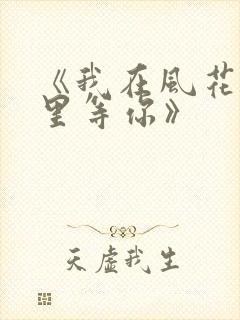 《我在風花
里等你》
天虚我生